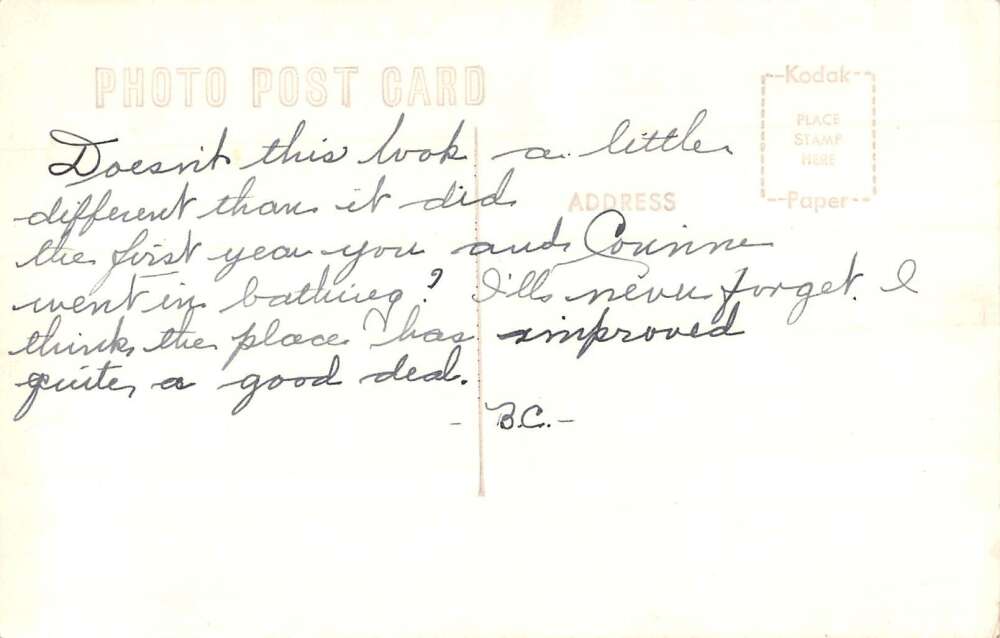 PHOTO POST CARD
--Kodak--
PLACE
STAMP
HERE
--Paper--
ADDRESS
Doesn't this look a little
different than it did
the first year you and Corinne
went in bathing? I'll never forget. I
think the place has improved
quite a good deal.
- B.C. -